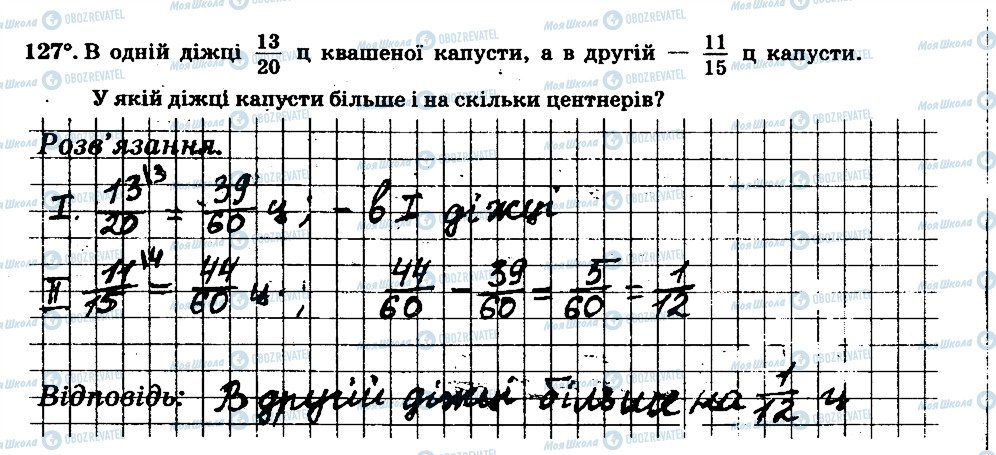 127°. В одній діжці 13/20 ц квашеної капусти, а в другій — 11/15 ц капусти.
У якій діжці капусти більше і на скільки центнерів?
Розв'язання.
I. 13\3/20 = 39/60 ц; - в I діжці
II 11\4/15 = 44/60 ц.; 44/60 - 39/60 = 5/60 = 1/12
Відповідь: В другій діжці більше на 1/12 ц